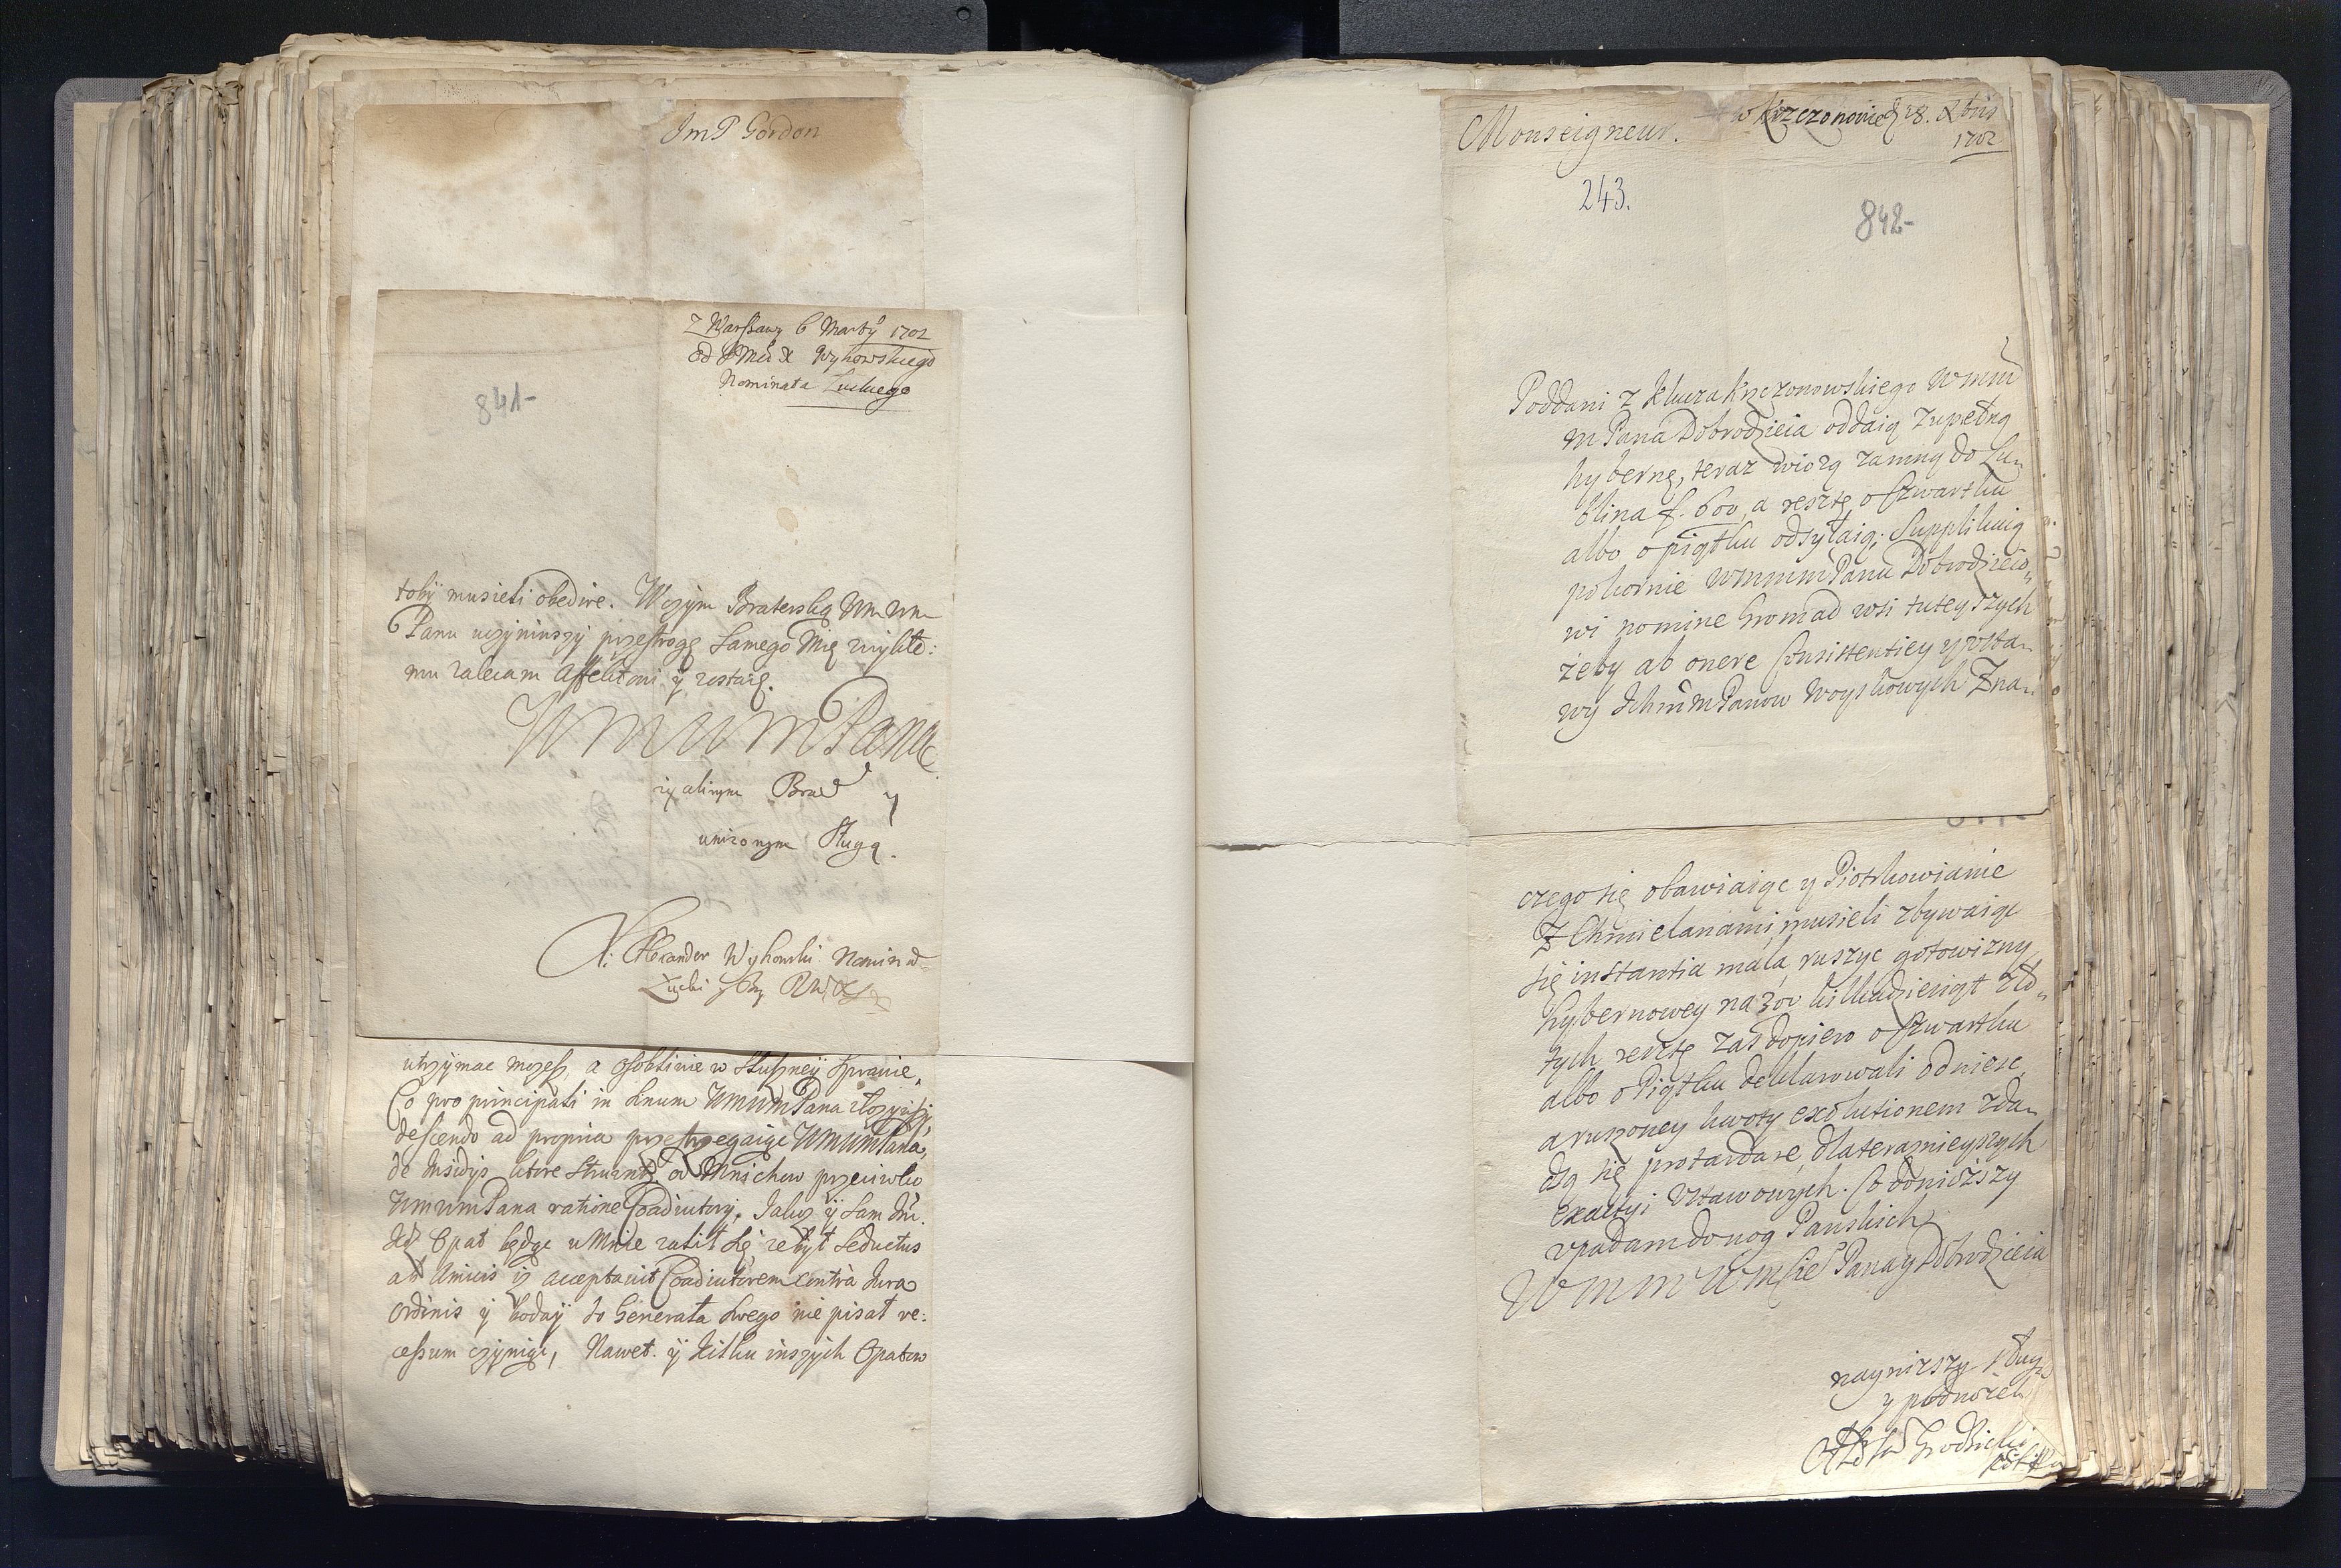 ImP Gordon
Z Warszawy 6 Martÿ 1702
od JMci X Wyhowskiego
Nominata Łuckiego
841-
tobÿ musieli obedire. Moÿm Braterską Um Um
Panu uczÿniwszÿ przestrogę samego Mię zwÿkłe:
mu zalecam Affektowi ÿ zostaię.
UmUmPana
zyczliwym Brat y
unizonym Sługą.
X: Alexander Wyhowski Nominat
Łucki
utrzÿmac mozesz, a osobliwie w słusznéÿ sprawie.
Co pro principali in sinum UmUmPana złozÿwszÿ,
descendo ad propria przestrzegaiąc UmUmPana,
de insidÿs, ktore struunt od Mnichow przeciwko
UmUmPana ratione Coadiutorÿ. Jakoz ÿ sam
Opat będąc u Mnie zalił się, ze bÿł seductus
ab Amicis iz acceptavit Coadiutorem contrà Jura
Ordinis ÿ bodaÿ do Generała swego nie pisał re:
cessum czÿniąc, Nawet ÿ kilku inszÿch Opatow
Monseigneur.
w Krzczonowie d 28. Xbris
1702
243.
842-
Poddani z klucza Krzczonowskiego Wmm
m Pana Dobrodzieia oddaią zupełną
hybernę, teraz wiozą zamną do Lu-
blina f. 600, a resztę o Czwartku
albo o piątku odsyłaią; supplikuią
pokornie WmmmPanu Dobrodzieio-
wi nomine Gromad wsi tuteyszych
żeby ab onere Consistentiey y posta-
wy Ichmm Panow Woyskowych Zna-
czego się obawiaiąc y Piotrkowianie
Z Chmielanami, musieli zbywaiąc
się instantia mala, ruszyc gotowizny
hybernowey na 300 kilkadziesiąt zło-
tych resztę zas dopiero o Czwartku
albo o Piątku deklarowali odniesc,
a ruszoney kwoty exolutionem zda-
dzą się protardare, dlaterażnieyszych
exactyi Ustawowych. Co doniosszy
upadam do nog Panskich
WmmUmscie Pana y Dobrodzieia
naynizszy sług
y podnożek
Grodzicki